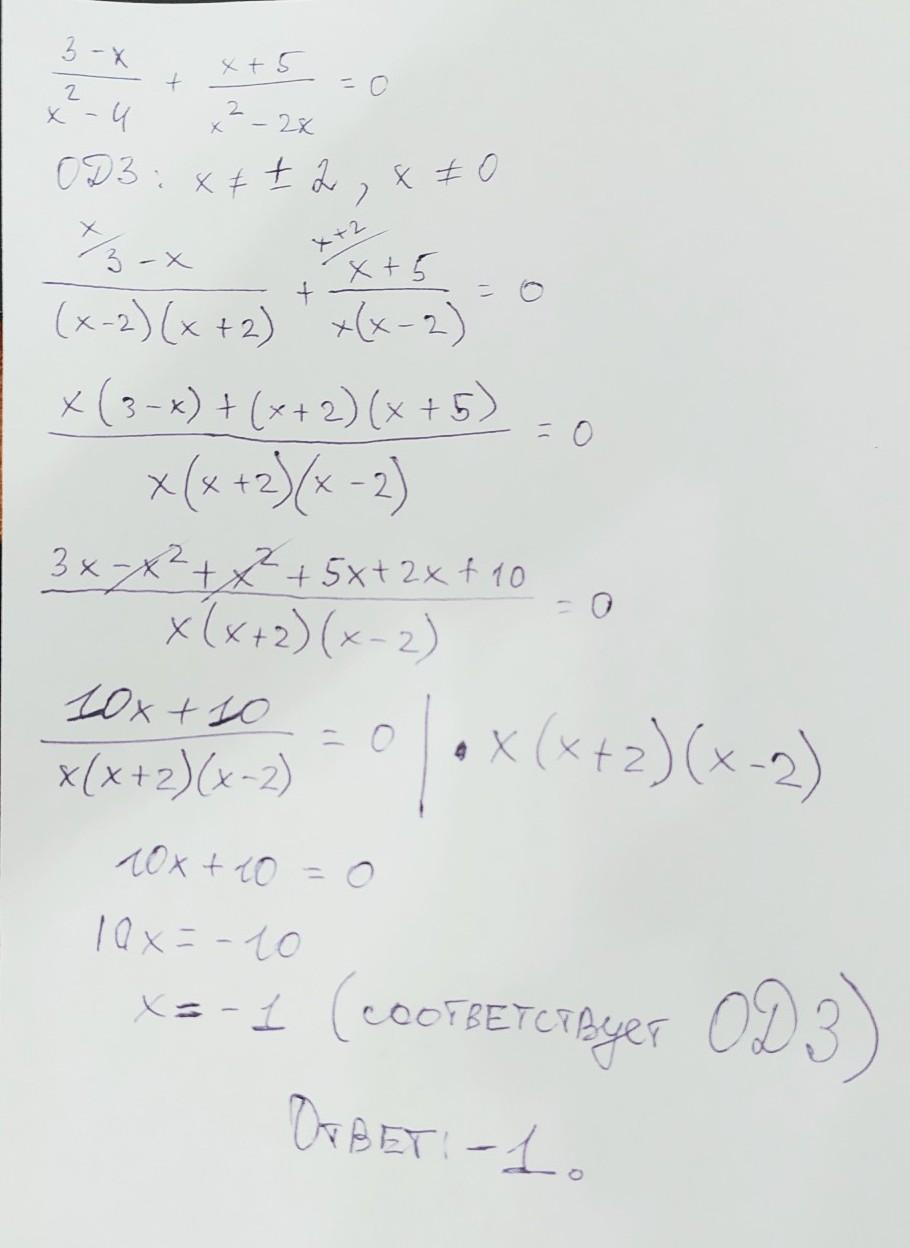 (3-x)/(x²-4) + (x+5)/(x²-2x) = 0
ОДЗ: x ≠ ± 2, x ≠ 0
x/ (3-x)/((x-2)(x+2)) + x+2/ (x+5)/(x(x-2)) = 0
(x(3-x)+(x+2)(x+5))/(x(x+2)(x-2)) = 0
(3x-x²+x²+5x+2x+10)/(x(x+2)(x-2)) = 0
(10x+10)/(x(x+2)(x-2)) = 0 | · x(x+2)(x-2)
10x+10 = 0
10x = -10
x = -1 (соответствует ОДЗ)
Ответ: -1.